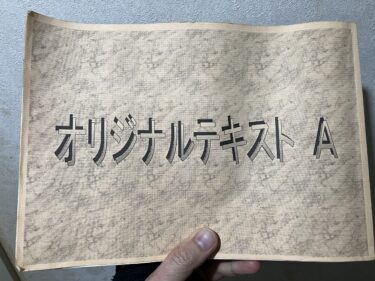 オリジナルテキスト A